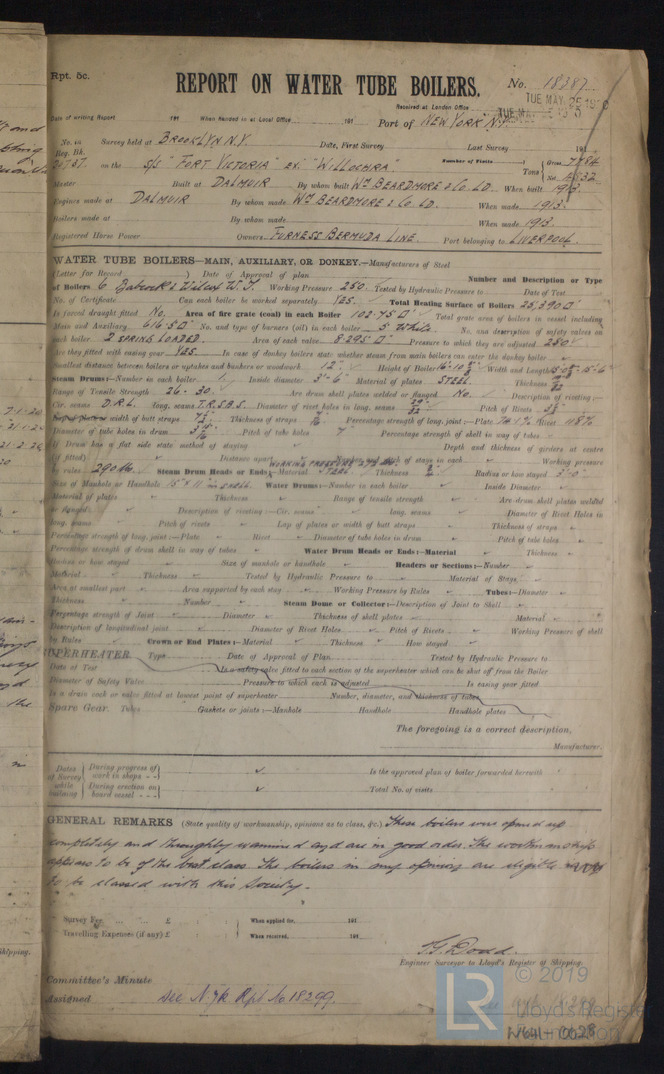 Rpt. 5c.
REPORT ON WATER TUBE BOILERS.
No. 18387
Received at London Office
TUE MAY
Date of writing Report 191 When handed in at Local Office 191 Port of NEW YORK N.Y.
No. in Survey held at BROOKLYN N.Y. Date, First Survey Last Survey 191
Reg. Bk.
on the S/S "FORT VICTORIA" EX. "WILLOCHRA" Number of Visits Tons Gross 7784
Master Built at DALMUIR By whom built WM BEARDMORE & Co. LD. When built 1913.
Engines made at DALMUIR By whom made WM BEARDMORE & Co. LD. When made 1913.
Boilers made at By whom made When made 1913.
Registered Horse Power Owners FURNESS BERMUDA LINE. Port belonging to LIVERPOOL.
WATER TUBE BOILERS—MAIN, AUXILIARY, OR DONKEY.—Manufacturers of Steel
(Letter for Record ) Date of Approval of plan Number and Description or Type
of Boilers 6 Babcock & Wilcox W.T. Working Pressure 250. Tested by Hydraulic Pressure to Date of Test
No. of Certificate Can each boiler be worked separately. YES. Total Heating Surface of Boilers 25,390 □'
Is forced draught fitted No. Area of fire grate (coal) in each Boiler 102.75 □' Total grate area of boilers in vessel including
Main and Auxiliary 616.5 □' No. and type of burners (oil) in each boiler 5 White No. and description of safety valves on
each boiler 2 SPRING LOADED. Area of each valve 8.295 □" Pressure to which they are adjusted 250
Are they fitted with easing gear YES. In case of donkey boilers state whether steam from main boilers can enter the donkey boiler
Smallest distance between boilers or uptakes and bunkers or woodwork 12" Height of Boiler Width and Length
Steam Drums:—Number in each boiler 1. Inside diameter 3'-6" Material of plates STEEL. Thickness
Range of Tensile Strength 26-30. Are drum shell plates welded or flanged No. Description of riveting:—
Cir. seams D.R.L. long. seams T.R.S.B.S. Diameter of rivet holes in long. seams Pitch of Rivets
width of butt straps Thickness of straps Percentage strength of long. joint:—Plate Rivet
Diameter of tube holes in drum Pitch of tube holes 7" Percentage strength of shell in way of tubes
If Drum has a flat side state method of staying Depth and thickness of girders at centre
(if fitted) Distance apart Number and pitch of stays in each Working pressure
by rules 290 lbs Steam Drum Heads or Ends:—Material STEEL. Thickness Radius or how stayed 3'-0"
Size of Manhole or Handhole 15" x 11" in SHELL. Water Drums:—Number in each boiler Inside Diameter
Material of plates Thickness Range of tensile strength Are drum shell plates welded
or flanged Description of riveting:—Cir. seams long. seams Diameter of Rivet Holes in
long. seams Pitch of rivets Lap of plates or width of butt straps Thickness of straps
Percentage strength of long. joint:—Plate Rivet Diameter of tube holes in drum Pitch of tube holes
Percentage strength of drum shell in way of tubes Water Drum Heads or Ends:—Material Thickness
Radius or how stayed Size of manhole or handhole Headers or Sections:—Number
Material Thickness Tested by Hydraulic Pressure to Material of Stays
Area at smallest part Area supported by each stay Working Pressure by Rules Tubes:—Diameter
Thickness Number Steam Dome or Collector:—Description of Joint to Shell
Percentage strength of Joint Diameter Thickness of shell plates Material
Description of longitudinal joint Diameter of Rivet Holes Pitch of Rivets Working Pressure of shell
by Rules Crown or End Plates:—Material Thickness How stayed
SUPERHEATER Type Date of Approval of Plan Tested by Hydraulic Pressure to
Date of Test Is a safety valve fitted to each section of the superheater which can be shut off from the Boiler
Diameter of Safety Valve Pressure to which each is adjusted Is easing gear fitted
Is a drain cock or valve fitted at lowest point of superheater Number, diameter, and thickness of tubes
Spare Gear. Tubes Gaskets or joints:—Manhole Handhole Handhole plates
The foregoing is a correct description,
Manufacturer.
Dates of Survey while building During progress of work in shops - - Is the approved plan of boiler forwarded herewith
During erection on board vessel - - - Total No. of visits
GENERAL REMARKS (State quality of workmanship, opinions as to class, &c.) These boilers were opened up
completely and throughly examined and are in good order. The workmanship
appears to be of the best class. The boilers in my opinion are eligible
to be classed with this Society.
Survey Fee £ When applied for, 191
Travelling Expenses (if any) £ When received, 191
T.G. Dodd.
Engineer Surveyor to Lloyd's Register of Shipping.
Committee's Minute
Assigned see N.Yk Rpt No 18299.
© 2019
Lloyd's Register
Foundation
LR
W641-0028